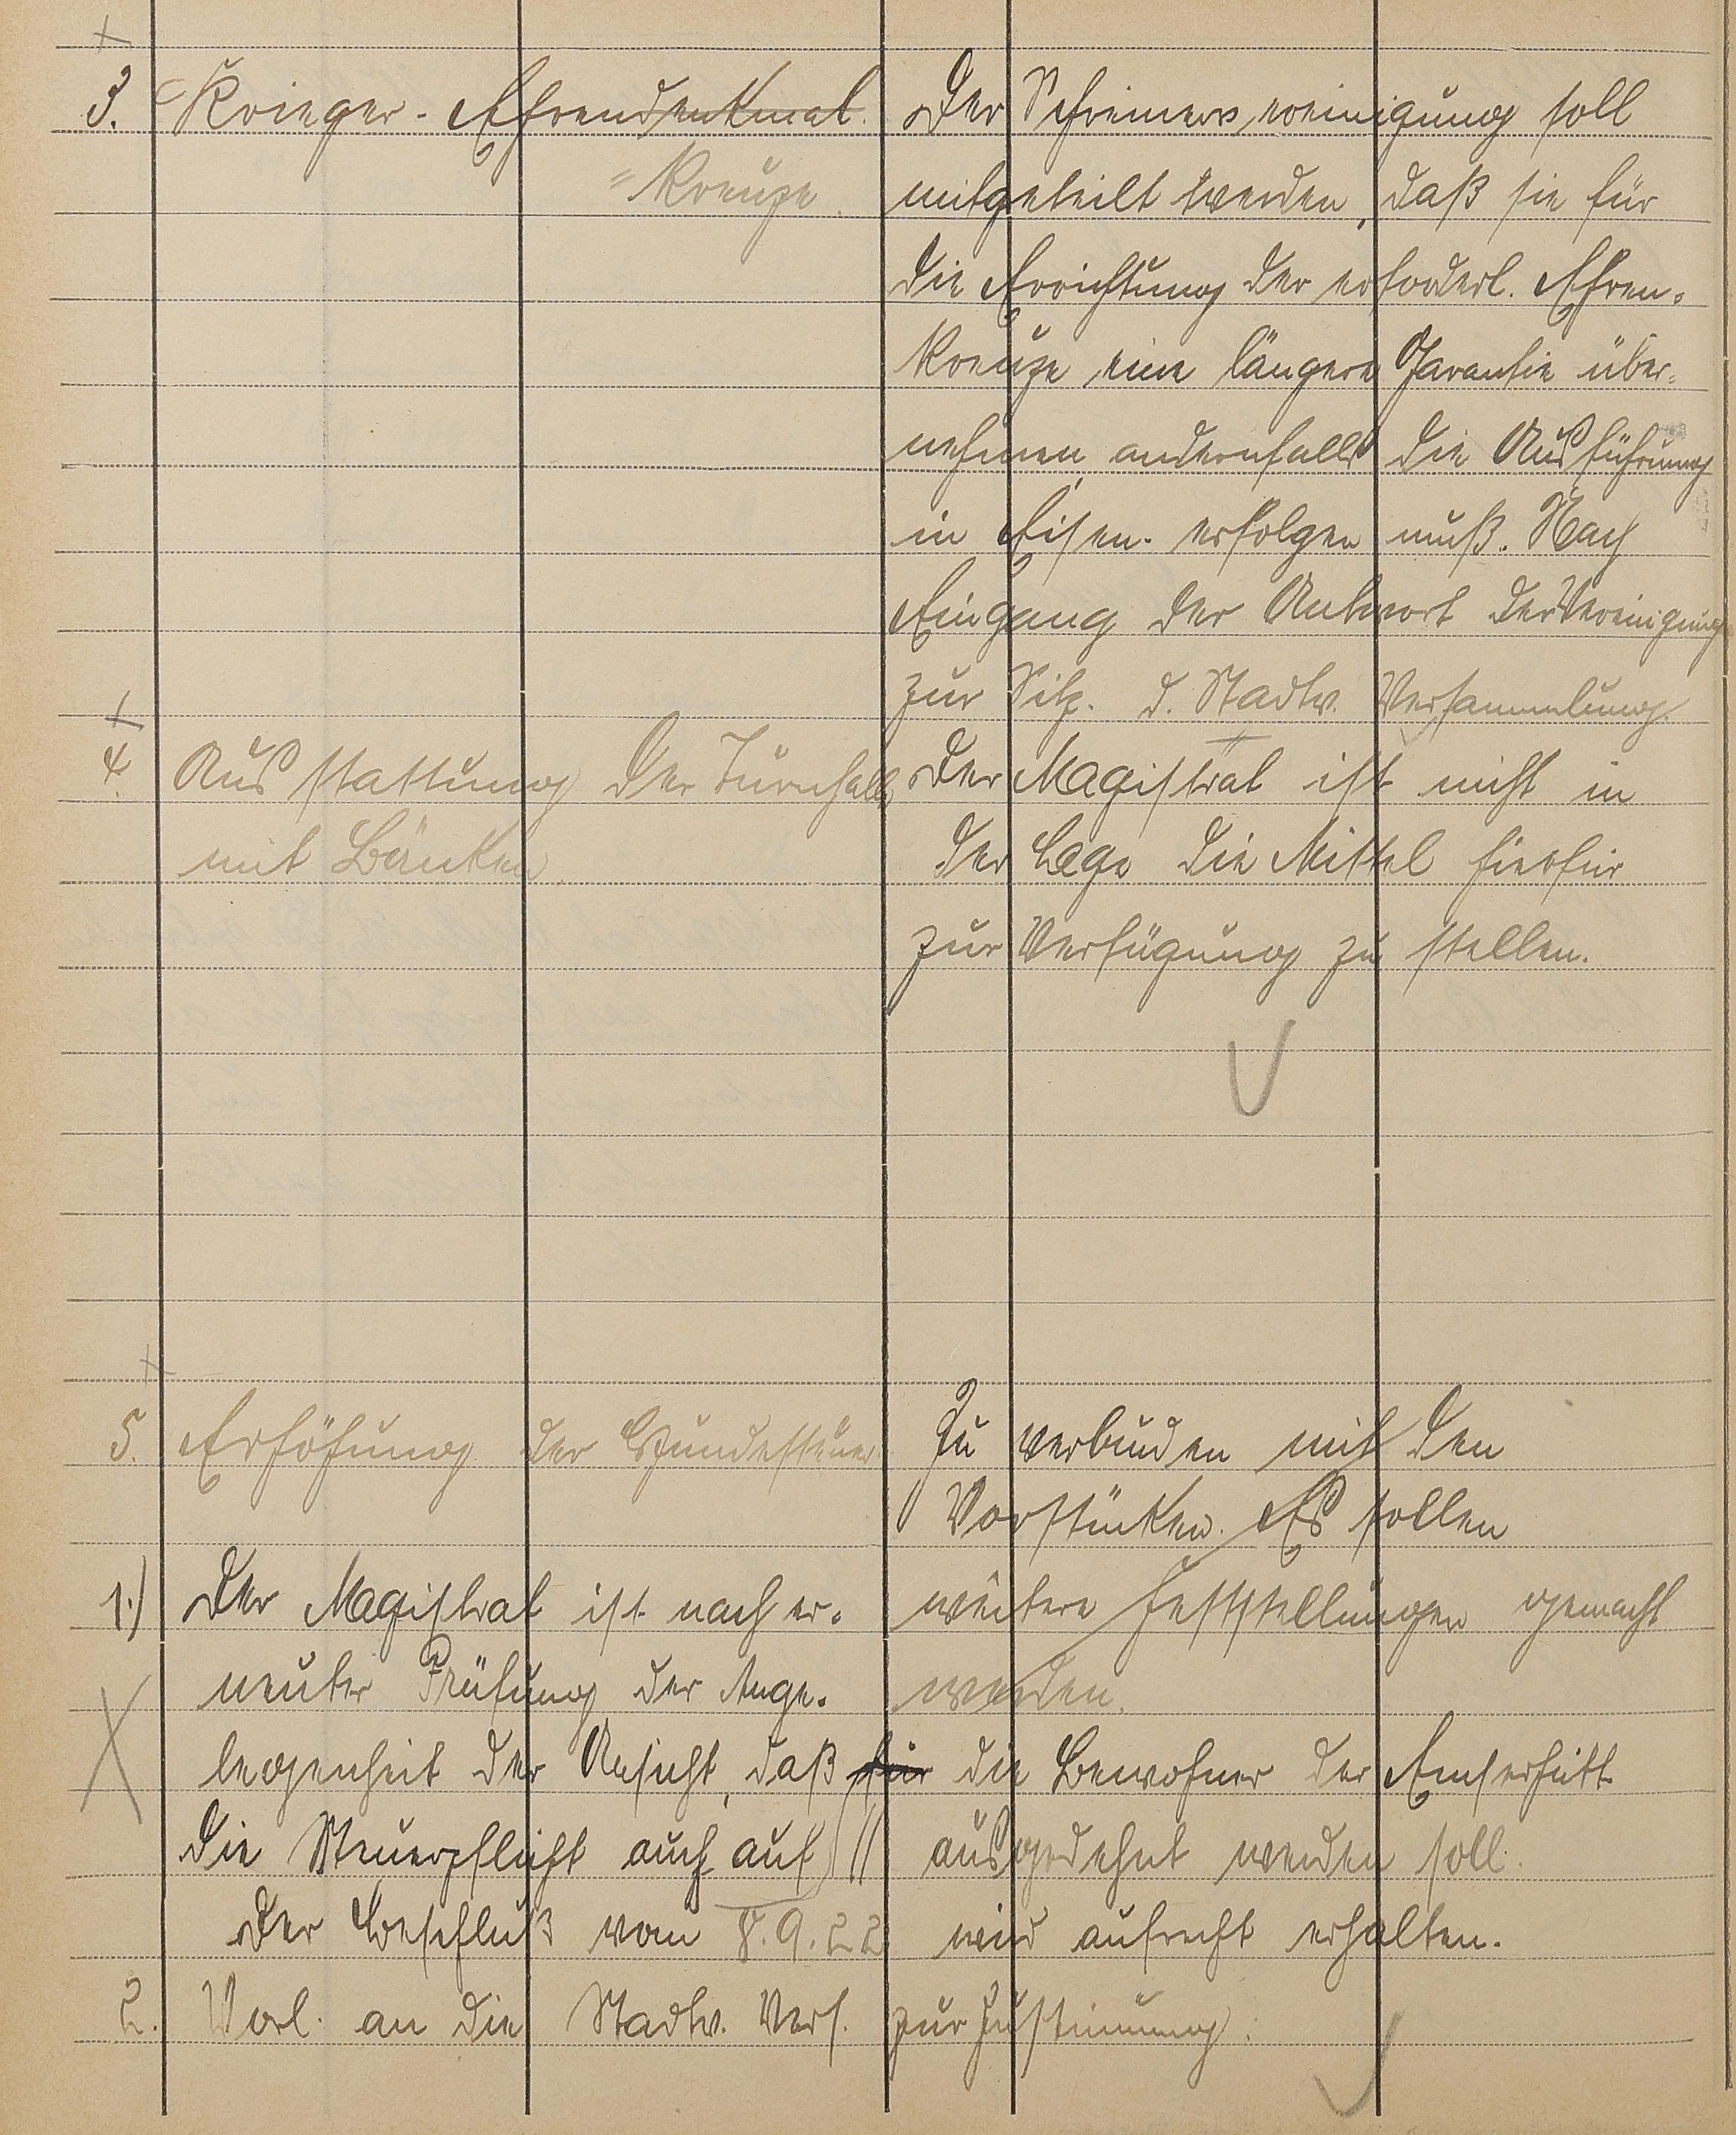 3. Krieger-Ehrendenkmal.
"Kreuze.
Der Schreinervereinigung soll
mitgeteilt werden, daß sie für
die Errichtung der erforderl. Ehren-
kreuze eine längere Garantie über-
nehmen, andernfalls die Ausführung
in Eisen erfolgen muß. Nach
Eingang der Antwort der Vereinigung
zur Sitz. d. Stadtv. Versammlung.
4. Ausstattung der Turnhalle
mit Bänken.
Der Magistrat ist nicht in
der Lage die Mittel hierfür
zur Verfügung zu stellen.
5. Erhöhung der Hundesteuer.
Zu verbinden mit den
Vorstücken. Es sollen
weitere Feststellungen gemacht
werden.
1.) Der Magistrat ist nach er-
neuter Prüfung der Ange-
legenheit der Ansicht, daß für
die Steuerpflicht auch auf
die Bewohner der Emserhütte
ausgedehnt werden soll.
Der Beschluß vom 8.9.22 wird aufrecht erhalten.
2. Vorl. an die Stadtv. Vers. zur Zustimmung.